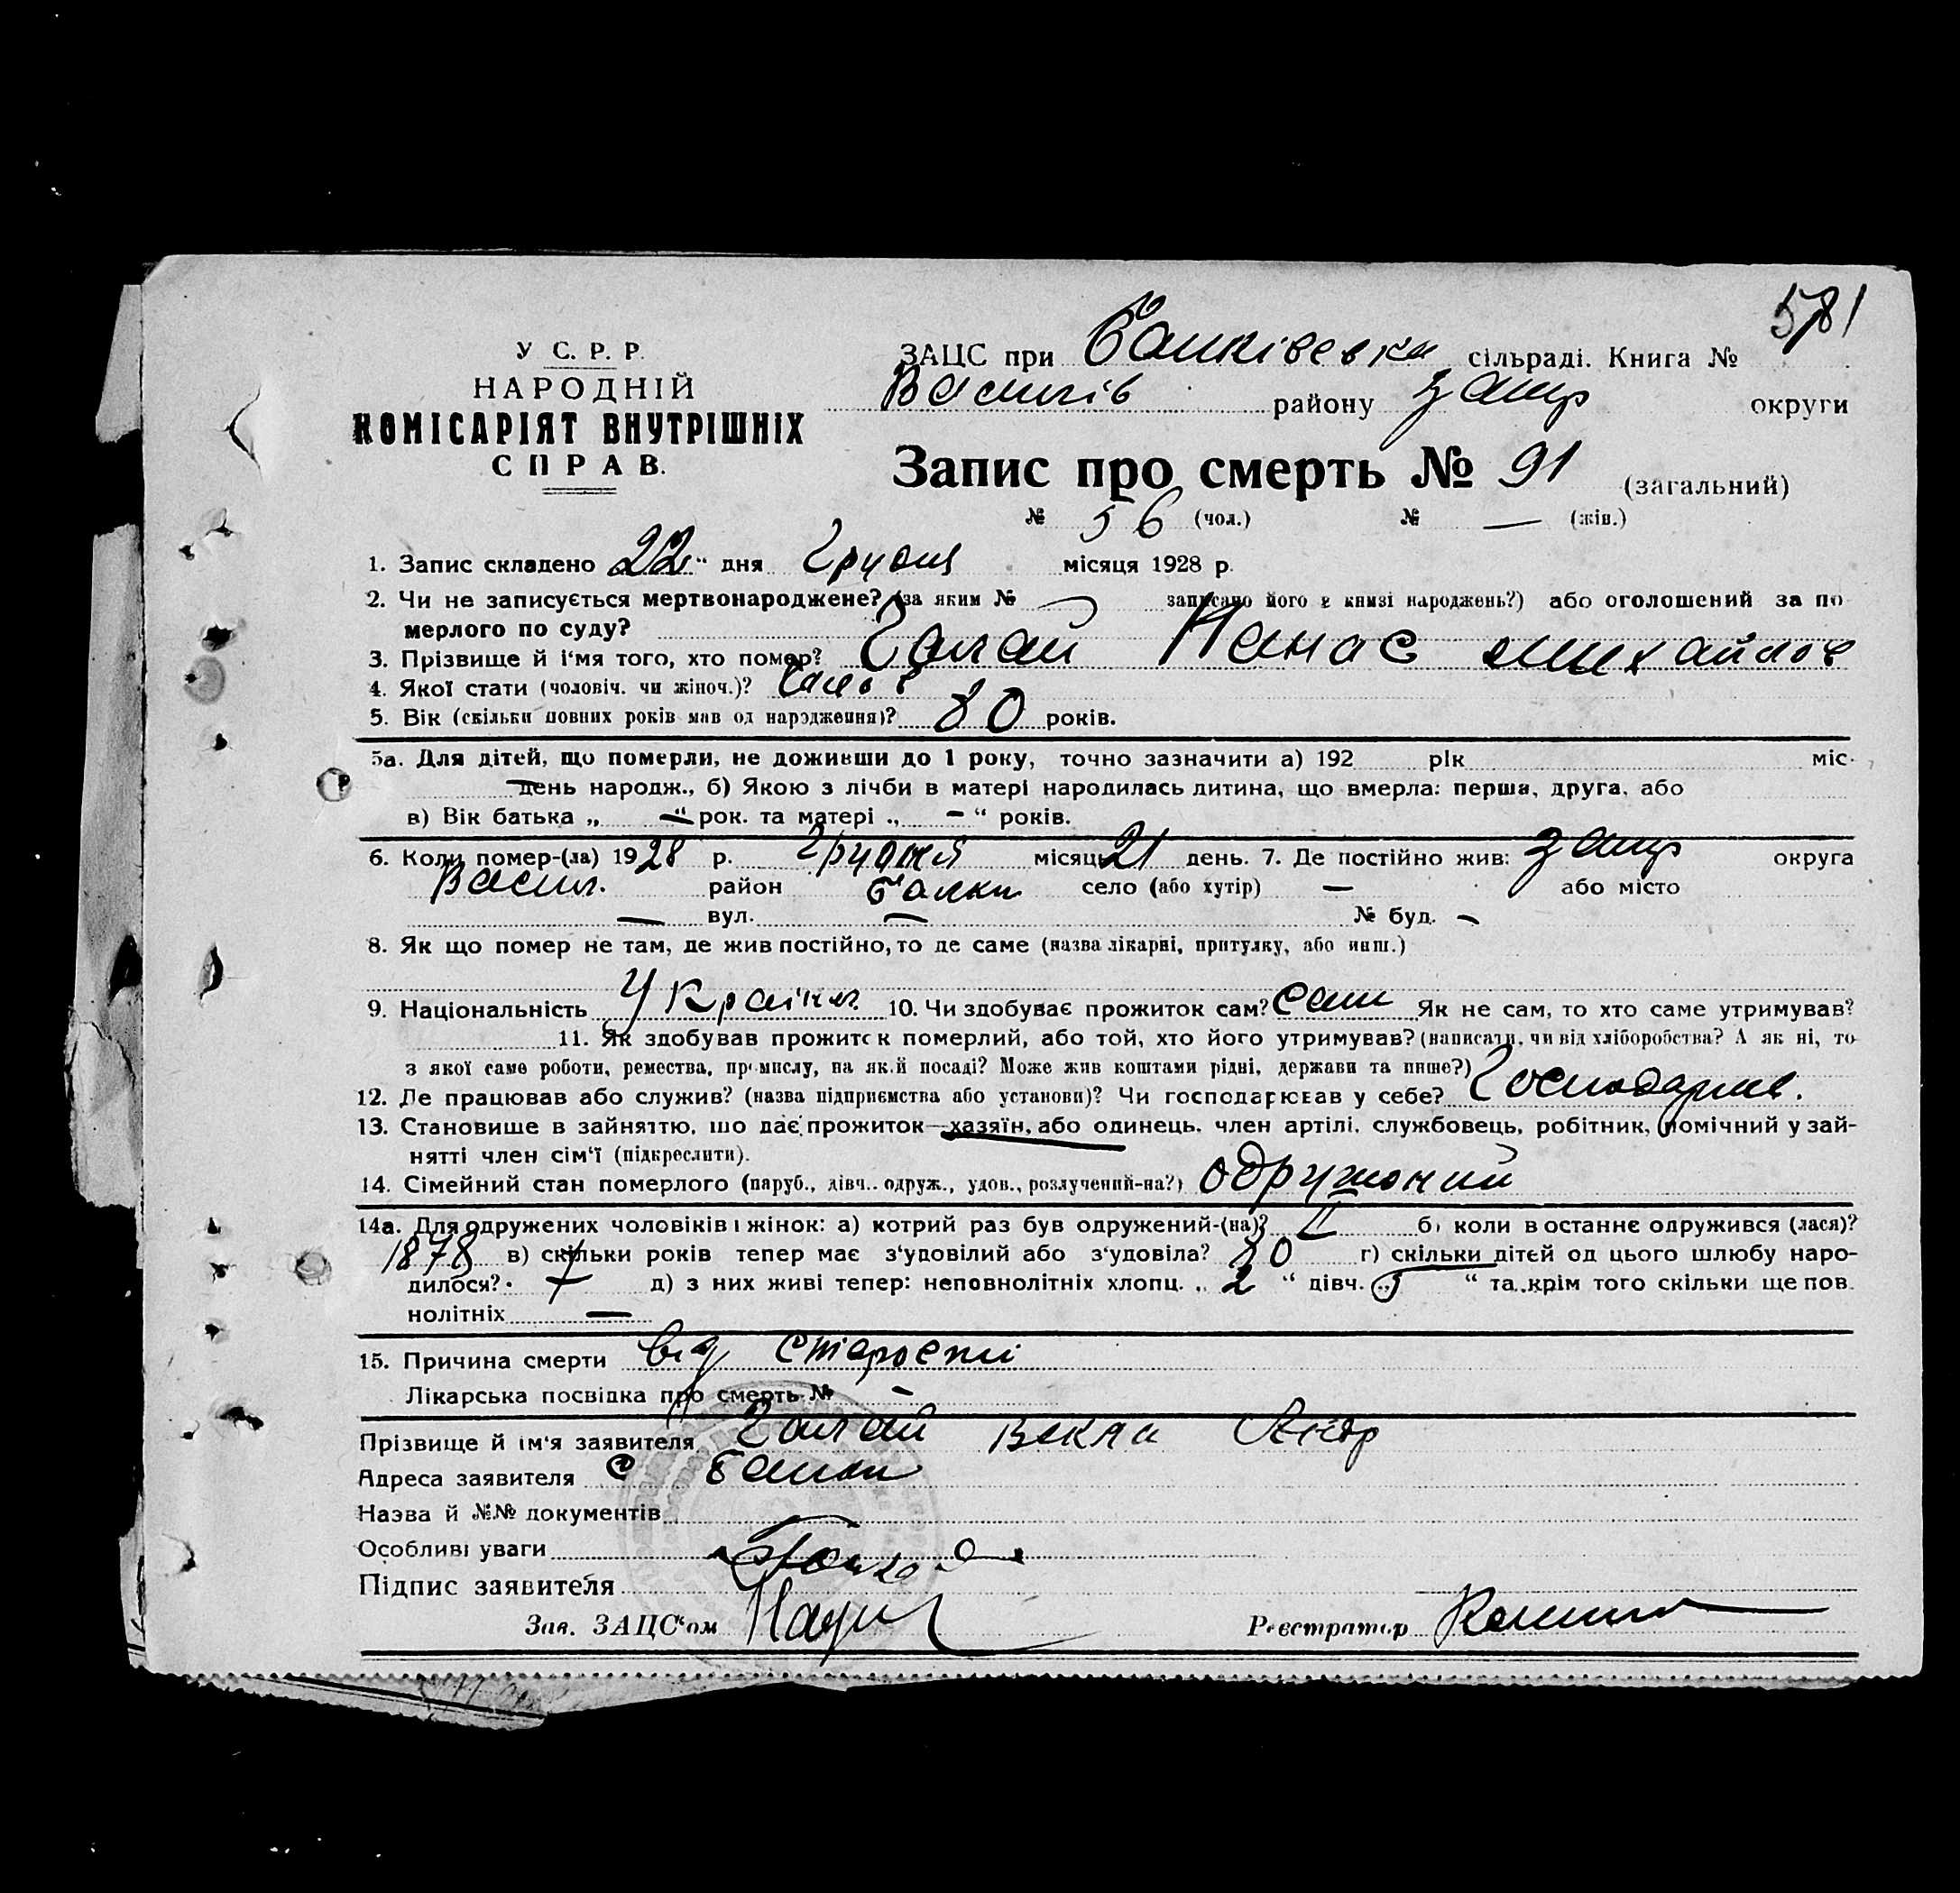 581
У С. Р. Р.
НАРОДНІЙ
КОМІСАРІЯТ ВНУТРІШНІХ
СПРАВ.
ЗАЦС при Балківська сільраді. Книга №
Василів району Запор округи
Запис про смерть № 91 (загальний)
№ 56 (чол.) № — (жін.)
1. Запис складено 22 " дня Грудня місяця 1928 р.
2. Чи не записується мертвонароджене? (за яким № записано його в книзі народжень?) або оголошений за по
мерлого по суду?
3. Прізвище й ім'я того, хто помер? Галай Панас Михайлов
4. Якої стати (чоловіч. чи жіноч.)?
5. Вік (скільки повних років мав од народження)? 80 років.
5а. Для дітей, що померли, не доживши до 1 року, точно зазначити а) 192 рік міс.
день народж., б) Якою з лічби в матері народилась дитина, що вмерла: перша, друга, або
в) Вік батька „ — " рок. та матері „ — " років.
6. Коли помер-(ла) 1928 р. Грудня місяць 21 день. 7. Де постійно жив: Запор округа
Васил. район Балки село (або хутір) — або місто
— вул. — № буд. —
8. Як що помер не там, де жив постійно, то де саме (назва лікарні, притулку, або инш.)
9. Національність Україн 10. Чи здобуває прожиток сам? Сам Як не сам, то хто саме утримував?
11. Як здобував прожиток померлий, або той, хто його утримував? (написати, чи від хліборобства? А як ні, то
з якої саме роботи, ремества, промислу, на якій посаді? Може жив коштами рідні, держави та инше?)
12. Де працював або служив? (назва підприємства або установи)? Чи господарював у себе? Господарив.
13. Становище в зайняттю, що дає прожиток—хазяїн, або одинець, член артілі, службовець, робітник, помічний у зай-
нятті член сім'ї (підкреслити).
14. Сімейний стан померлого (паруб., дівч.. одруж., удов., розлучений-на?) одружоний
14а. Для одружених чоловіків і жінок: а) котрий раз був одружений-(на)? II б) коли в останнє одружився (лася)?
1878 в) скільки років тепер має з'удовілий або з'удовіла? 80 г) скільки дітей од цього шлюбу наро-
дилося? 7 д) з них живі тепер: неповнолітніх хлопц. „ 2 " дівч. „ 5 " та крім того скільки ще пов.
нолітніх —
15. Причина смерти від старости
Лікарська посвідка про смерть № —
Прізвище й ім'я заявителя Галай Векла Андр
Адреса заявителя с Балки
Назва й №№ документів
Особливі уваги
Підпис заявителя
Зав. ЗАЦС'ом
Реєстратор